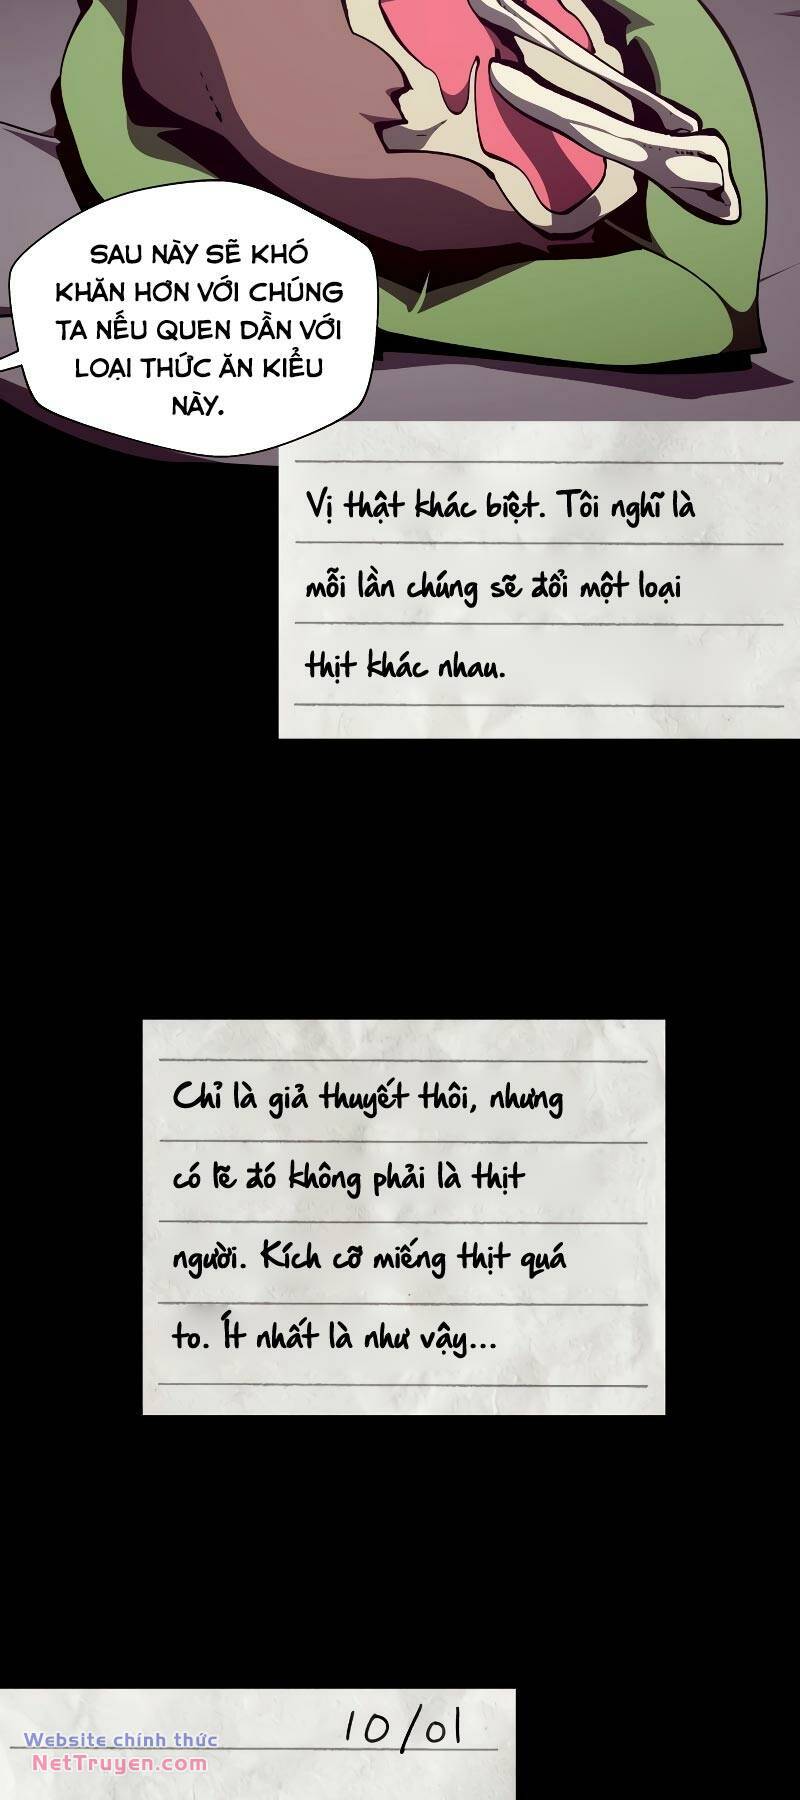 SAU NÀY SẼ KHÓ
KHĂN HƠN VỚI CHÚNG
TA NẾU QUEN DẦN VỚI
LOẠI THỨC ĂN KIỂU
NÀY.
Vị thật khác biệt. Tôi nghĩ là
mỗi lần chúng sẽ đổi một loại
thịt khác nhau.
Chỉ là giả thuyết thôi, nhưng
có lẽ đó không phải là thịt
người. Kích cỡ miếng thịt quá
to. Ít nhất là như vậy...
10/01
Website chính thức
NetTruyen.com